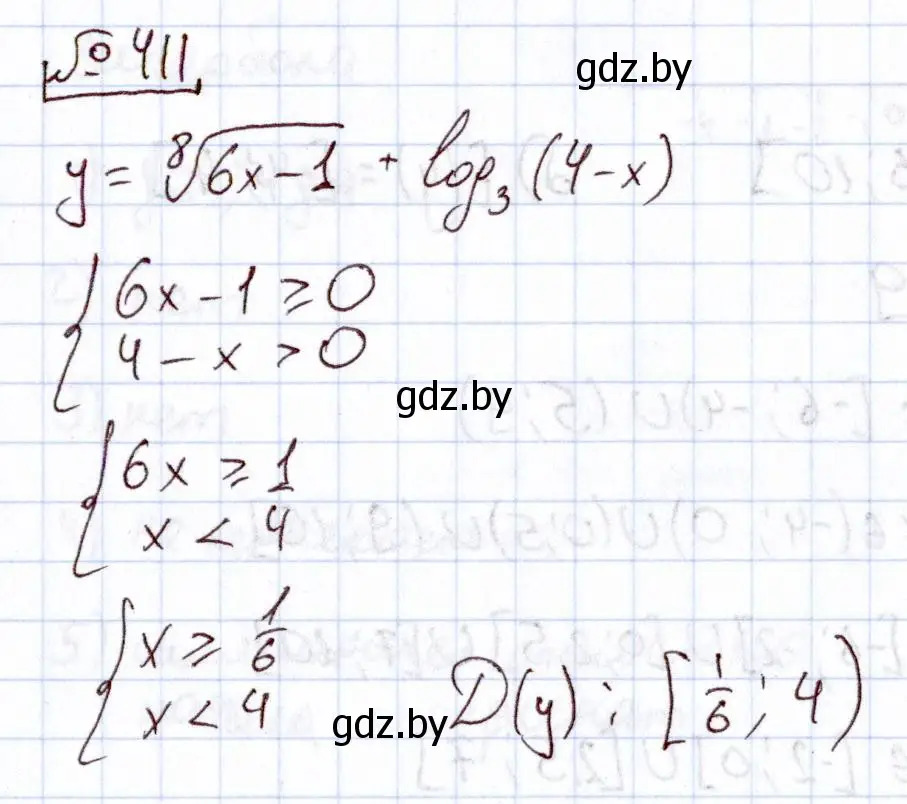 № 411
gdz.by
y = ⁸√(6x−1) + log₃(4−x)
{ 6x − 1 ⩾ 0
4 − x > 0
gdz.by
{ 6x ⩾ 1
x < 4
{ x ⩾ 1/6
x < 4
gdz.by
D(y): [1/6; 4)